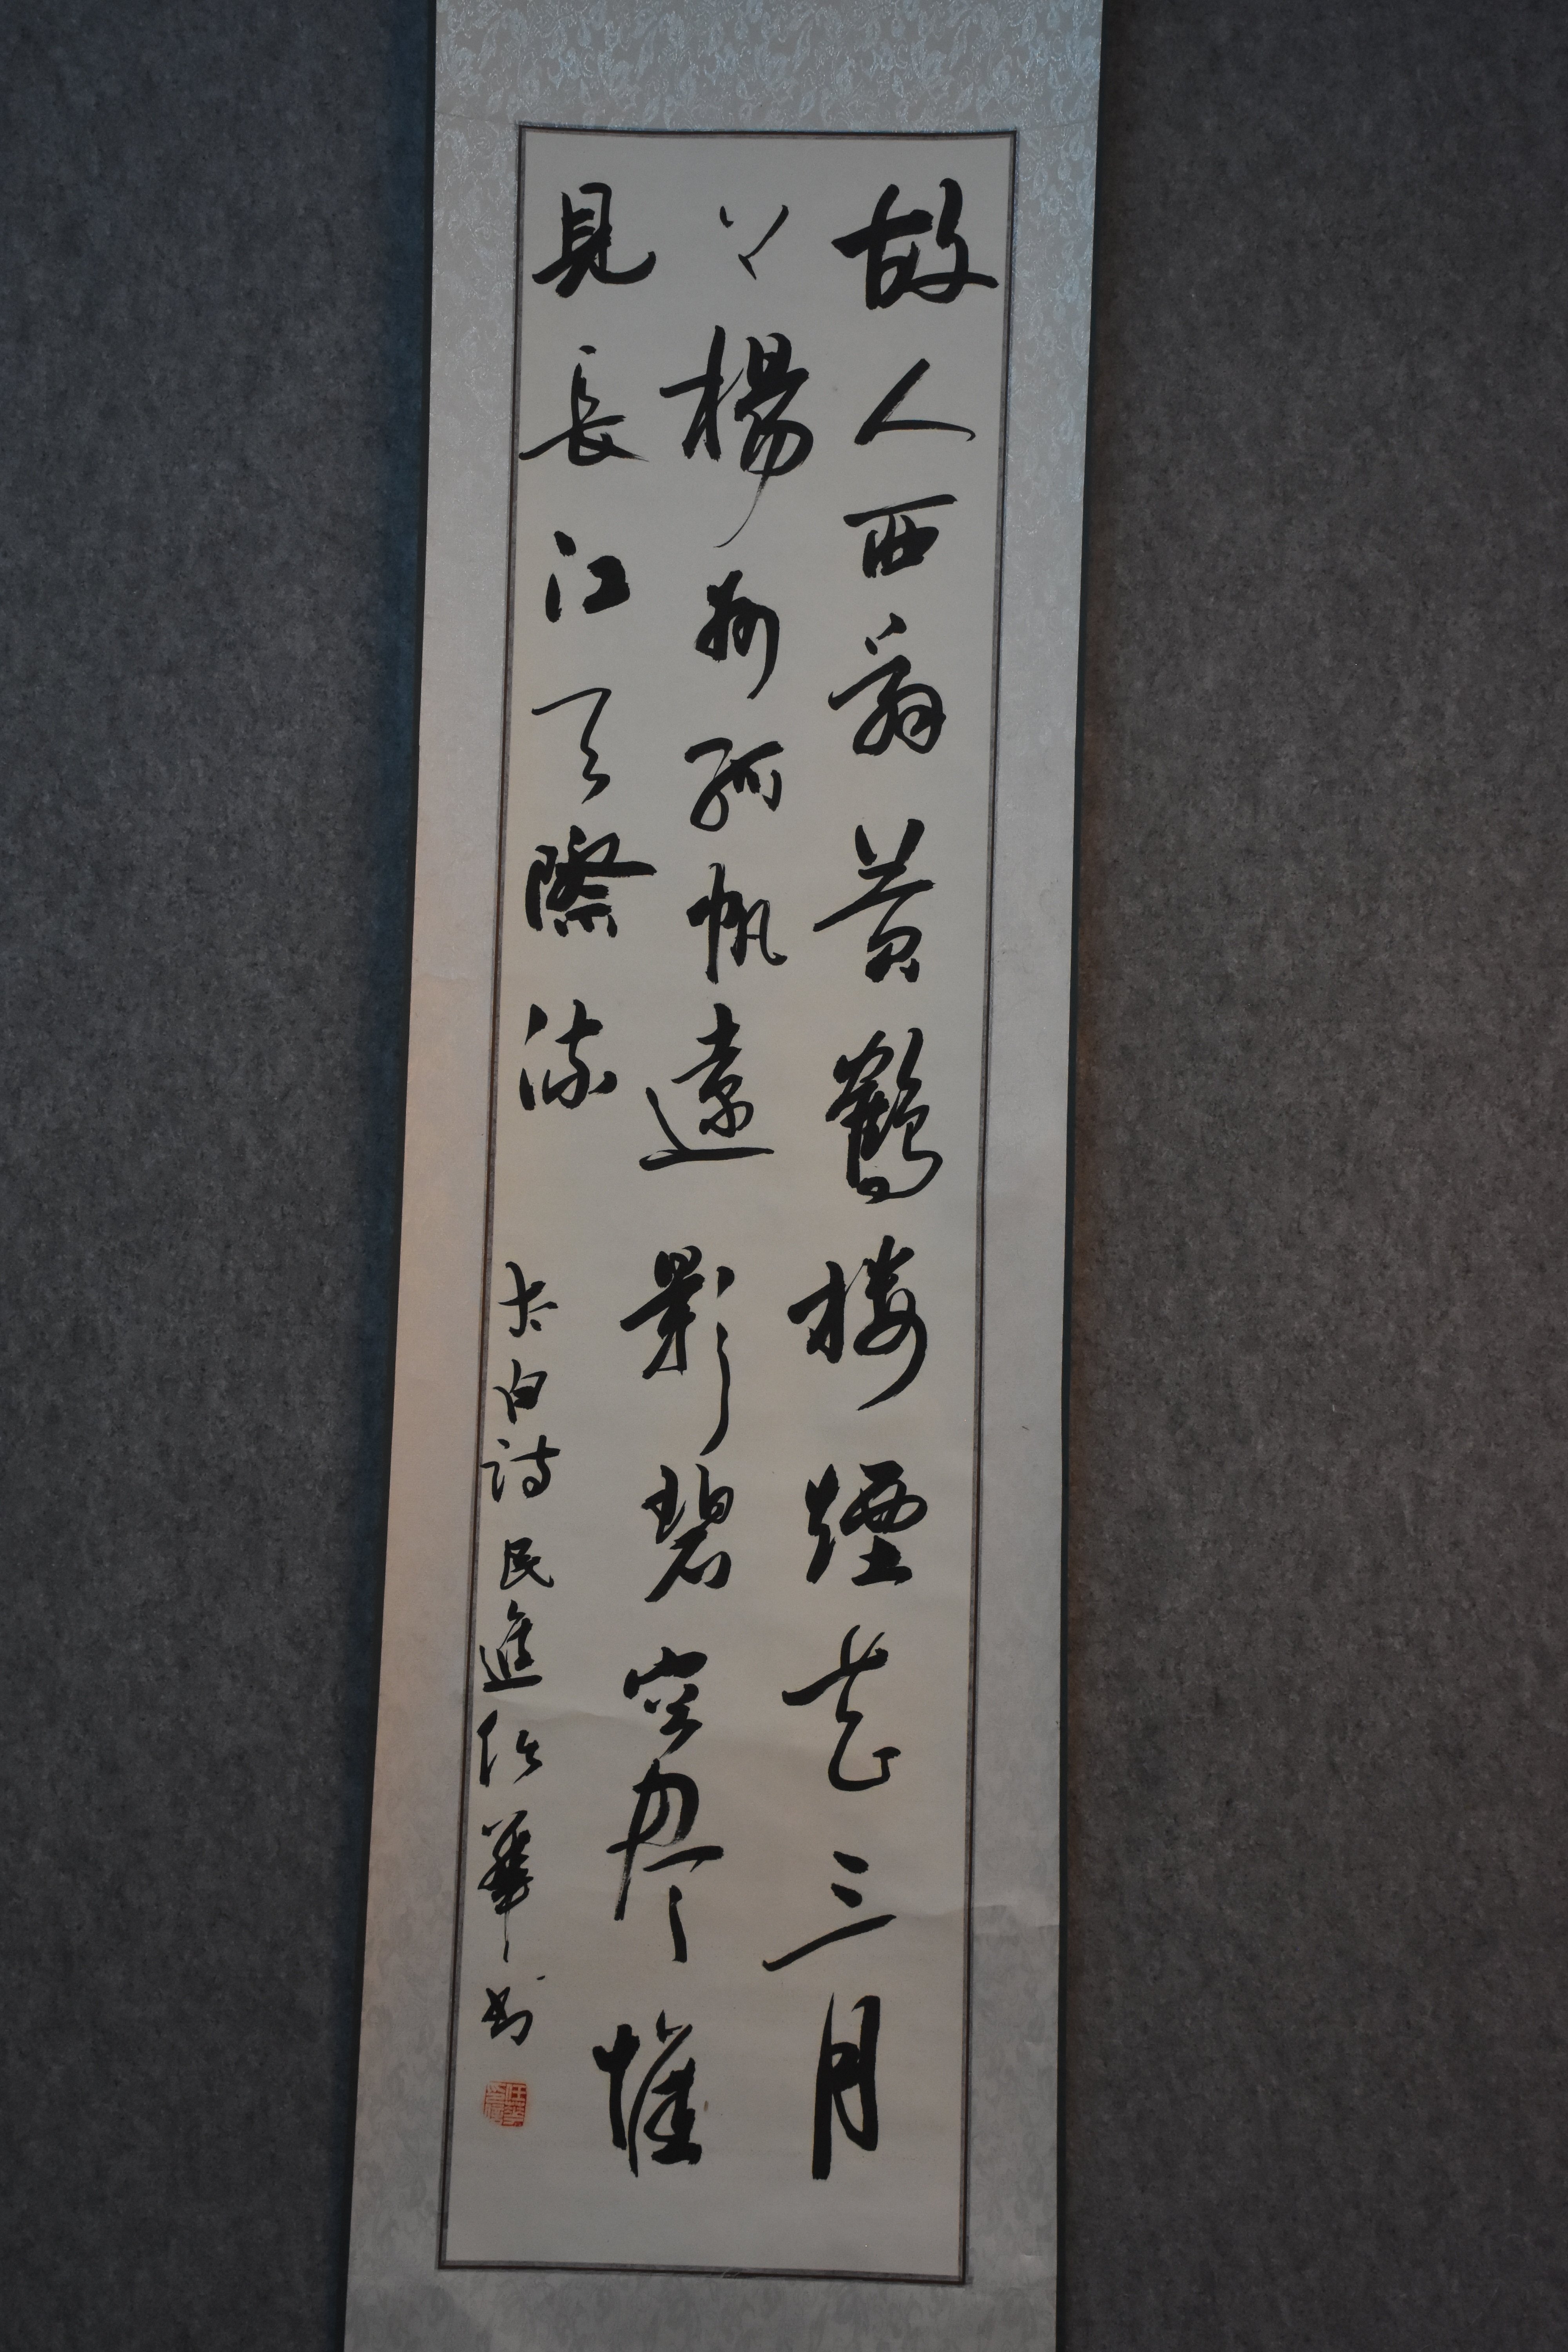 故人西辭黄鶴楼煙花三月
下楊州孤帆遠影碧空盡惟
見長江天際流
太白詩民進任華書